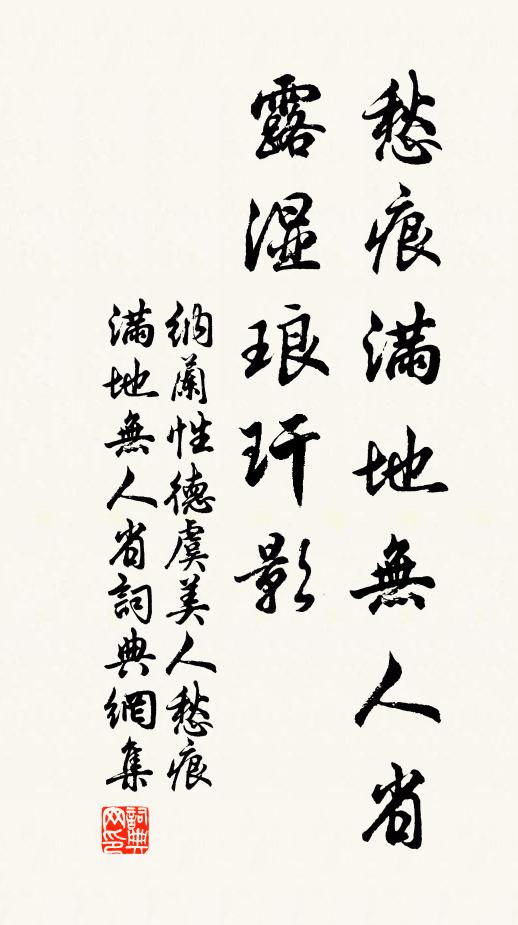 愁痕滿地無人省
露湿琅玕影
納蘭性德虞美人愁痕
滿地無人省詞典網集
詞典网印